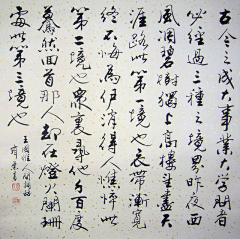 古今之成大事業大學問者
必經過三種之境界昨夜西
風凋碧樹獨上高樓望盡天
涯路此第一境也衣帶漸寬
終不悔為伊消得人憔悴此
第二境也眾裏尋他千百度
驀然回首那人却在燈火闌珊
處此第三境也
王國維人間詞話